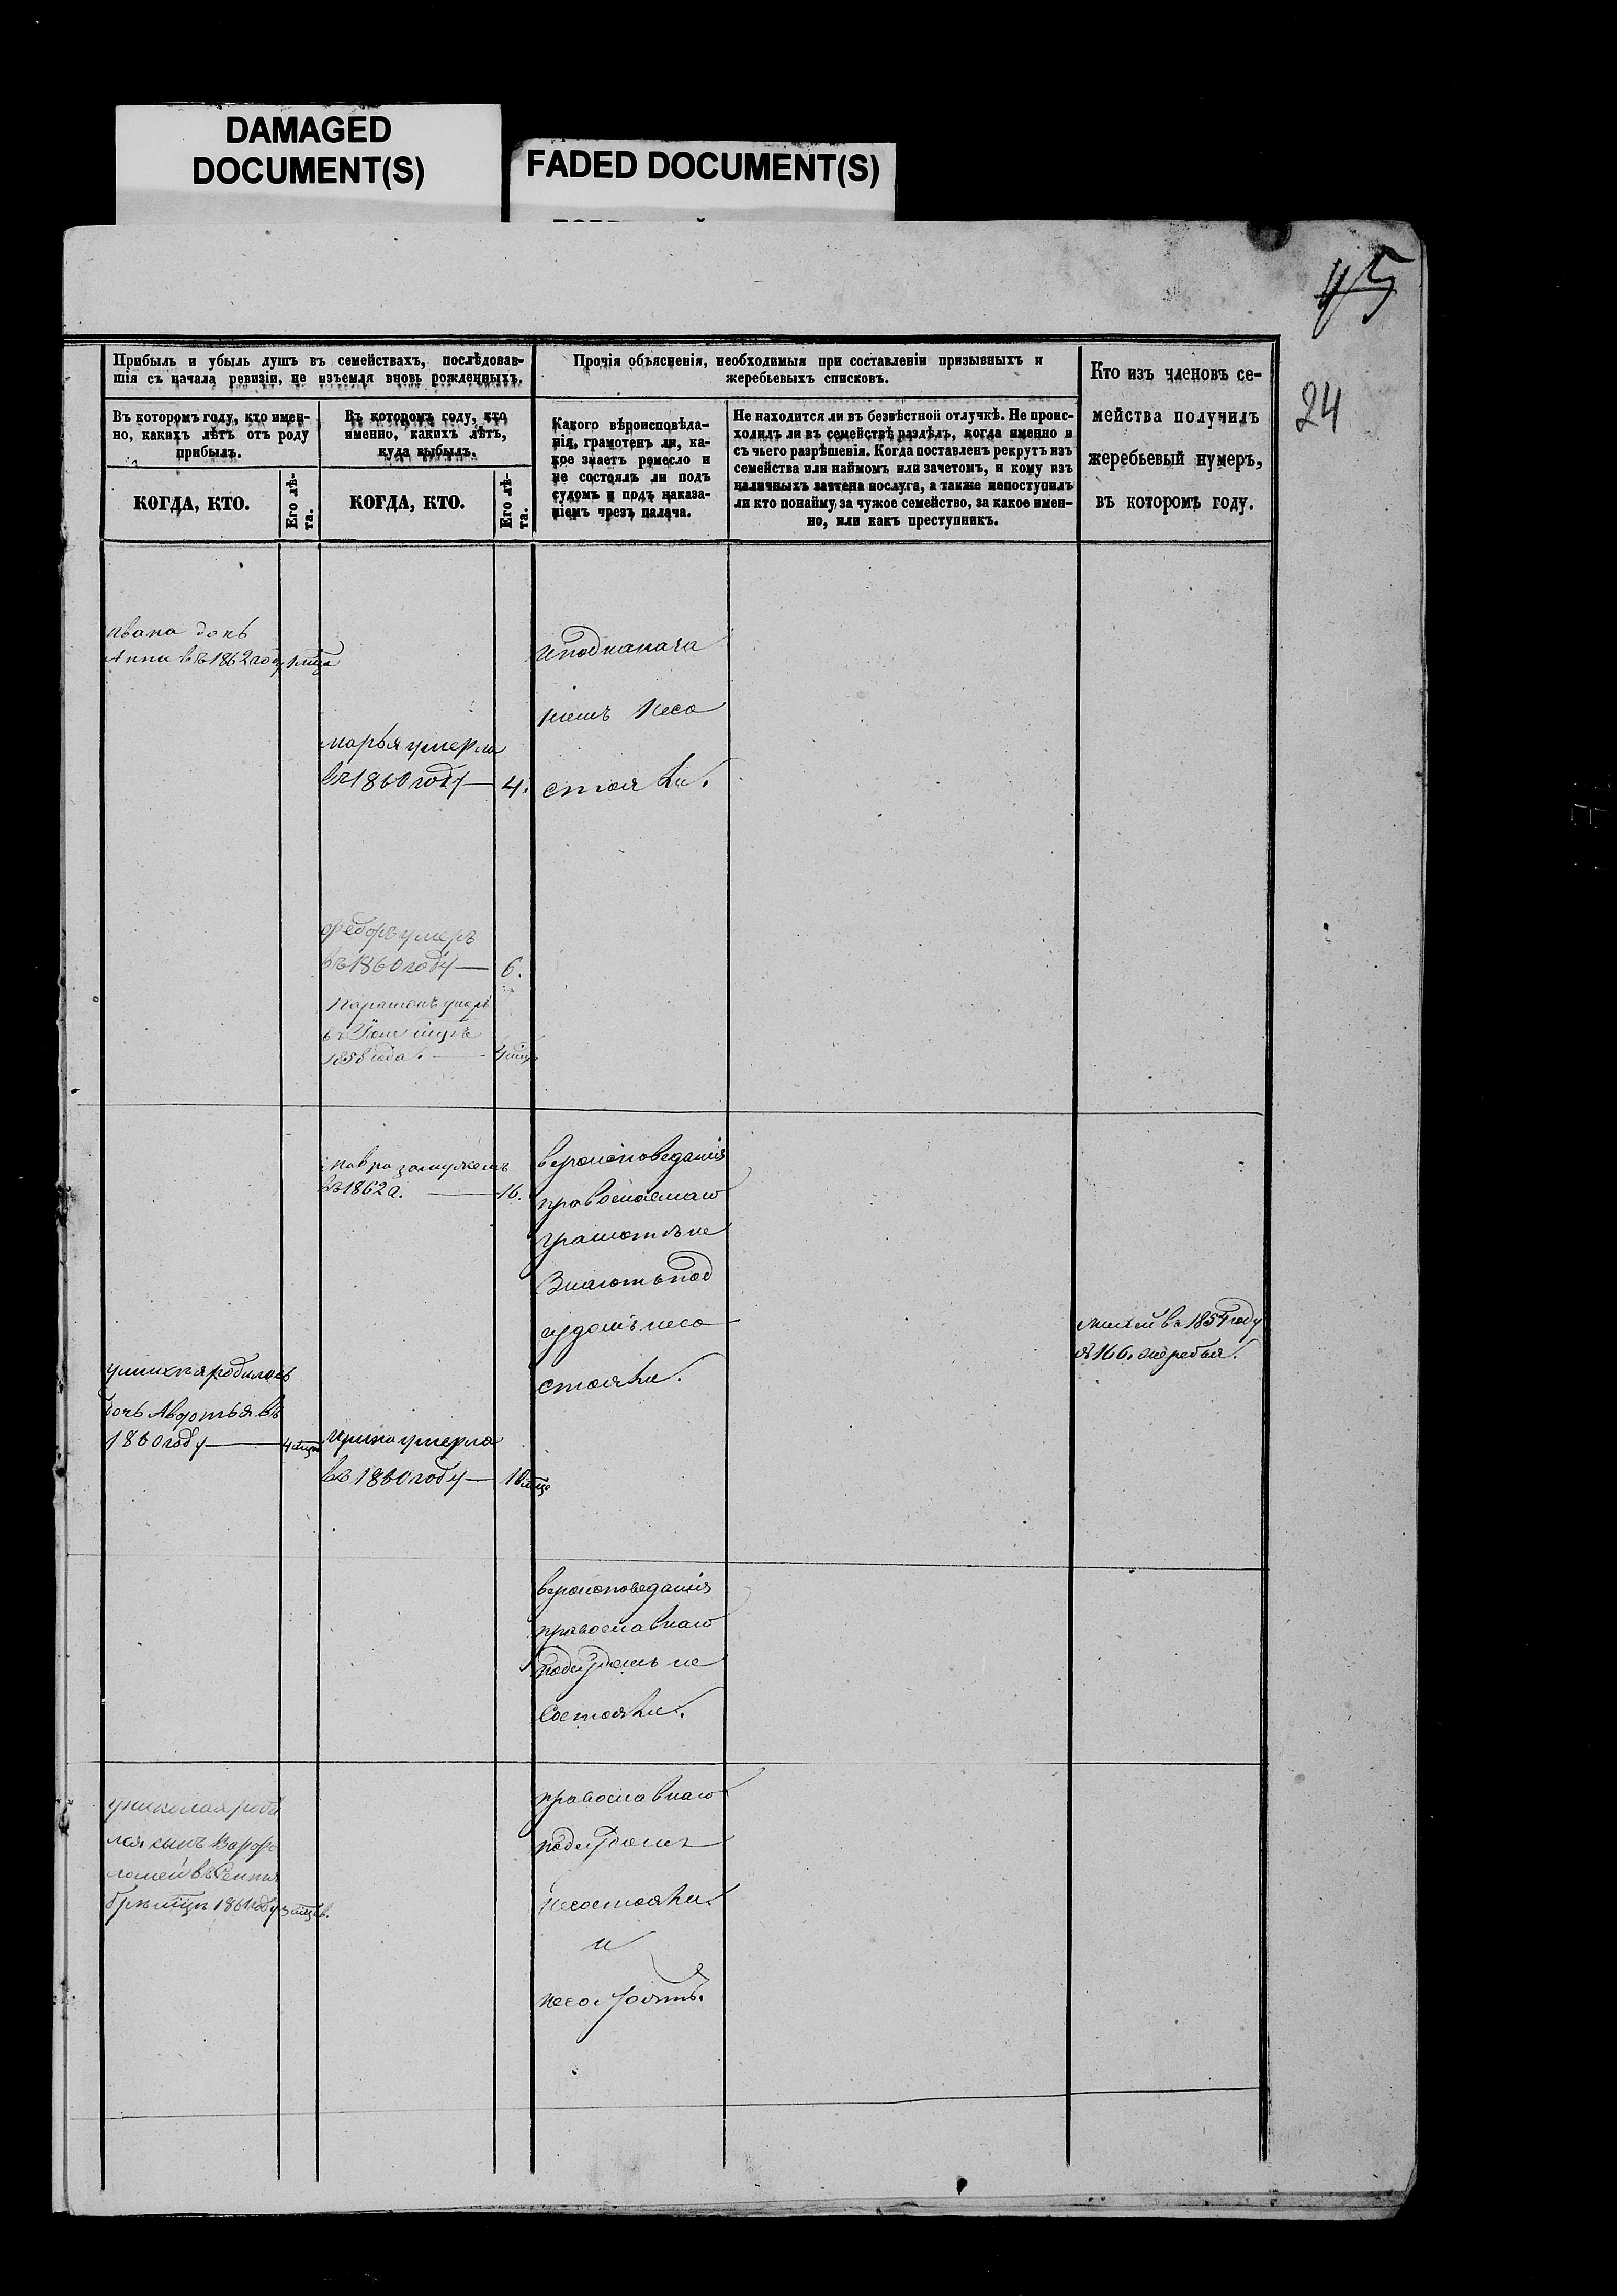 DAMAGED
DOCUMENT(S)
FADED DOCUMENT(S)
45
24
Прибыль и убыль душъ въ семействахъ, послѣдовав-
шія съ начала ревизіи, не изъемля вновь рожденныхъ.
Прочія объясненія, необходимыя при составленіи призывныхъ и
жеребьевыхъ списковъ.
Кто изъ членовъ се-
мейства получилъ
жеребьевый нумеръ,
въ которомъ году.
Въ которомъ году, кто имен-
но, какихъ лѣтъ отъ роду
прибылъ.
Въ которомъ году, кто
именно, какихъ лѣтъ,
куда выбылъ.
Какого вѣроисповѣда-
нія, грамотенъ ли, ка-
кое знаетъ ремесло и
не состоялъ ли подъ
судомъ и подъ наказа-
ніемъ чрезъ палача.
Не находится ли въ безвѣстной отлучкѣ. Не проис-
ходилъ ли въ семействѣ раздѣлъ, когда именно и
съ чьего разрѣшенія. Когда поставленъ рекрутъ изъ
семейства или наймомъ или зачетомъ, и кому изъ
наличныхъ зачтена послуга, а также непоступилъ
ли кто понайму за чужое семейство, за какое имен-
но, или какъ преступникъ.
КОГДА, КТО.
Его лѣ-
та.
КОГДА, КТО.
Его лѣ-
та.
ивана дочь
Анна въ 1862 году
иподнаказа
ніемъ несо
стояли.
марья умерла
въ 1860 году — 4.
федоръ умеръ
въ 1860 году — 6.
Парамонъ умеръ
1858 года.
замужемъ
въ 1862 г. — 16.
вероисповедания
православнаго
грамотѣ не
знаютъ под
судомъ несо
стояли.
михей въ 1854 году
№ 166. жеребья.
умихея родилась
дочь Авдотья въ
1860 году
ирина умерла
въ 1860 году — 10
вероисповедания
православнаго
подсудомъ не
состояли.
униколая роди
лся сынъ Варфо
ломей въ Сентя
брѣ мцѣ 1861 году
православнаго
подсудомъ
несостояли
и